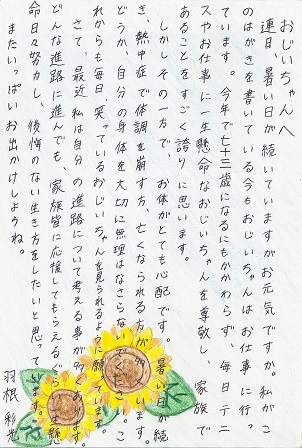 おじいちゃんへ
連日、暑い日が続いていますがお元気ですか。私がこ
のはがきを書いている今もおじいちゃんはお仕事に行っ
ています。今年で七十三歳になるにもかかわらず、毎日テニ
スやお仕事に一生懸命なおじいちゃんを尊敬し、家族で
あることをすごく誇りに思います。
しかしその一方で、お体がとても心配です。暑い日が続
き、熱中症で体調を崩す方、亡くなられる方がいます。
どうか、自分の身体を大切に無理はなさらないでください。こ
れからも毎日笑っているおじいちゃんを見られるように願っています。
さて、最近私は自分の進路について考える事が多くあります。
どんな進路に進んでも、家族皆に応援してもらえるように懸
命日々努力し、後悔のない生き方をしたいと思っています。
またいっぱいお出かけしようね。
羽根 彩光